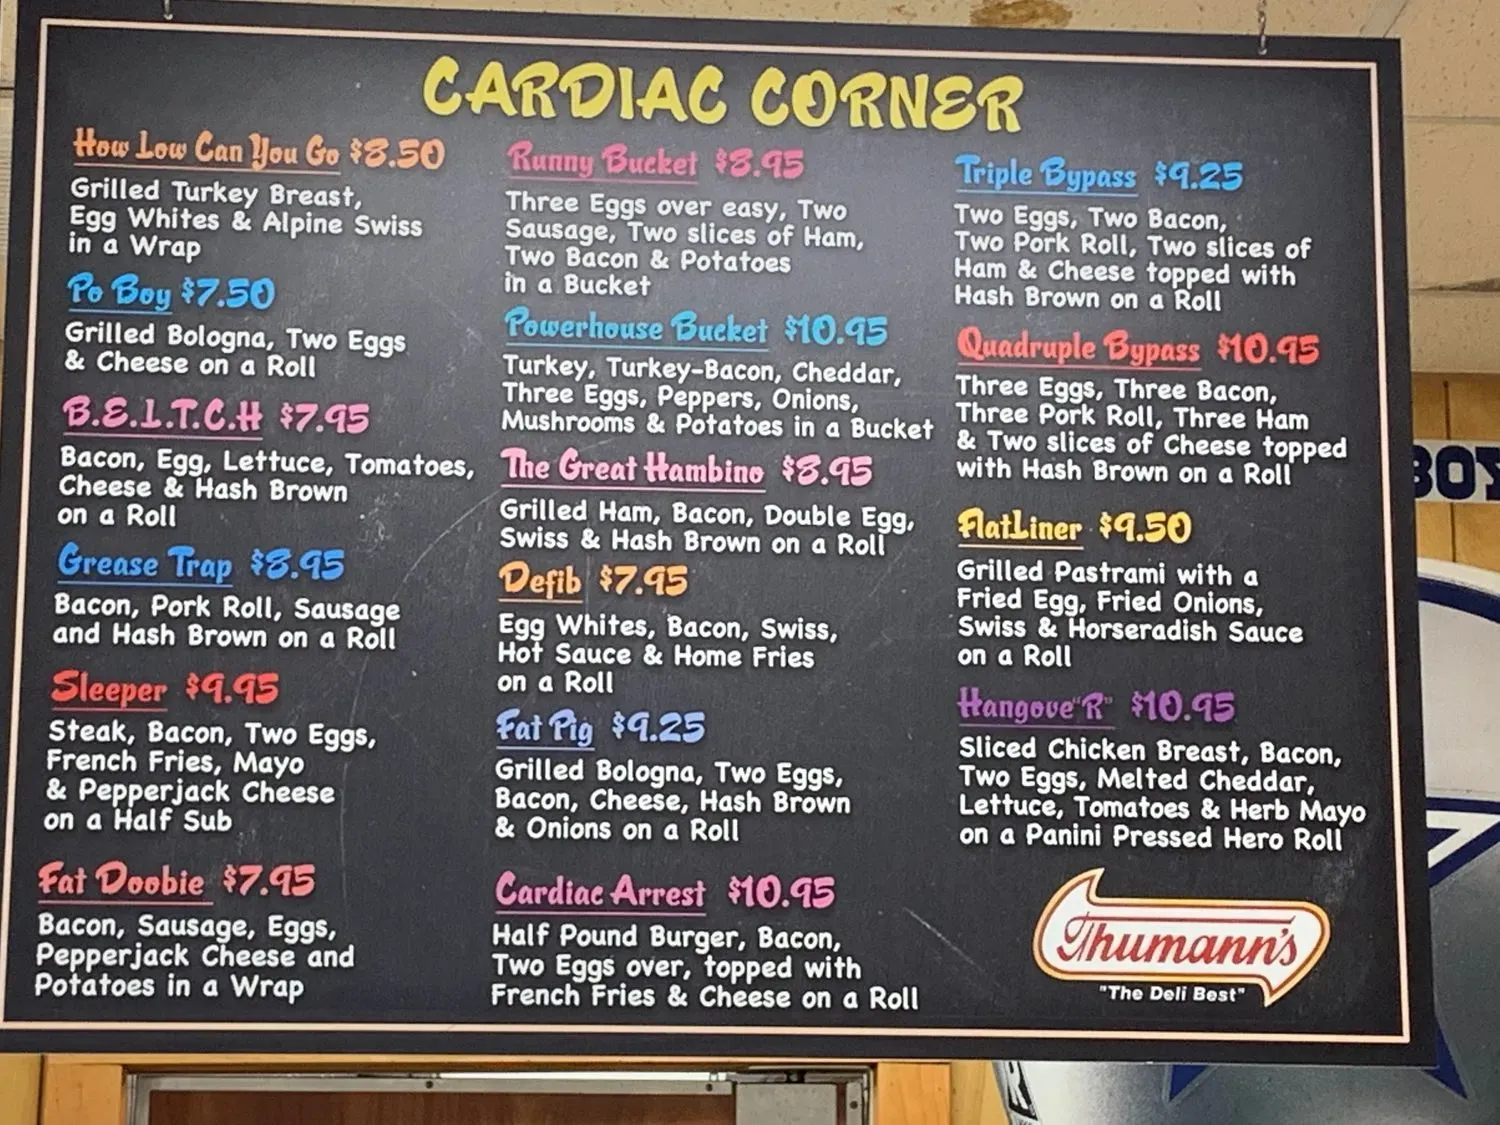 CARDIAC CORNER
How Low Can You Go $8.50
Grilled Turkey Breast,
Egg Whites & Alpine Swiss
in a Wrap
Po Boy $7.50
Grilled Bologna, Two Eggs
& Cheese on a Roll
B.E.L.T.C.H $7.95
Bacon, Egg, Lettuce, Tomatoes,
Cheese & Hash Brown
on a Roll
Grease Trap $8.95
Bacon, Pork Roll, Sausage
and Hash Brown on a Roll
Sleeper $9.95
Steak, Bacon, Two Eggs,
French Fries, Mayo
& Pepperjack Cheese
on a Half Sub
Fat Doobie $7.95
Bacon, Sausage, Eggs,
Pepperjack Cheese and
Potatoes in a Wrap
Runny Bucket $8.95
Three Eggs over easy, Two
Sausage, Two slices of Ham,
Two Bacon & Potatoes
in a Bucket
Powerhouse Bucket $10.95
Turkey, Turkey-Bacon, Cheddar,
Three Eggs, Peppers, Onions,
Mushrooms & Potatoes in a Bucket
The Great Hambino $8.95
Grilled Ham, Bacon, Double Egg,
Swiss & Hash Brown on a Roll
Defib $7.95
Egg Whites, Bacon, Swiss,
Hot Sauce & Home Fries
on a Roll
Fat Pig $9.25
Grilled Bologna, Two Eggs,
Bacon, Cheese, Hash Brown
& Onions on a Roll
Cardiac Arrest $10.95
Half Pound Burger, Bacon,
Two Eggs over, topped with
French Fries & Cheese on a Roll
Triple Bypass $9.25
Two Eggs, Two Bacon,
Two Pork Roll, Two slices of
Ham & Cheese topped with
Hash Brown on a Roll
Quadruple Bypass $10.95
Three Eggs, Three Bacon,
Three Pork Roll, Three Ham
& Two slices of Cheese topped
with Hash Brown on a Roll
FlatLiner $9.50
Grilled Pastrami with a
Fried Egg, Fried Onions,
Swiss & Horseradish Sauce
on a Roll
Hangove"R" $10.95
Sliced Chicken Breast, Bacon,
Two Eggs, Melted Cheddar,
Lettuce, Tomatoes & Herb Mayo
on a Panini Pressed Hero Roll
Thumann's
"The Deli Best"
BOY